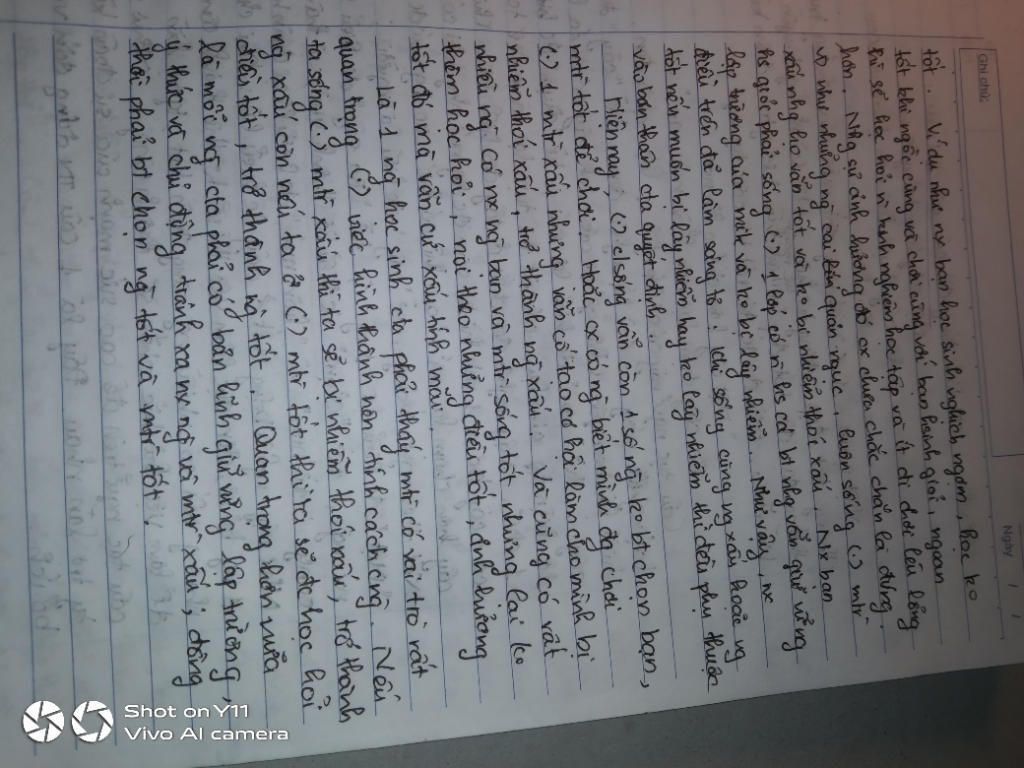 Ghi chú
Ngày / /
tốt. Ví dụ như nx bạn học sinh nghịch ngợm, học ko
tốt khi ngồi cùng và chơi cùng với bạn hsinh giỏi, ngoan
thì sẽ học hỏi kinh nghiệm học tập và ít đi chơi lêu lổng
hơn. Nhg sự ảnh hưởng đó cx chưa chắc chắn là đúng,
vd như những ng cai quản ngục, luôn sống (.) mtr
xấu nhg họ vẫn tốt và ko bị nhiễm thói xấu. Nx bạn
hs giỏi phải sống (.) 1 lớp có n hs cá bt nhg vẫn giữ vững
lập trường của mk và ko bị lây nhiễm. Như vậy, nx
điều trên đã làm sáng tỏ. Khi sống cùng ng xấu hoặc ng
tốt nên muốn bị lây nhiễm hay ko lây nhiễm thì đều phụ thuộc
vào bản thân cta quyết định.
Hiện nay, (.) c/sống vẫn còn 1 số ng ko bt chọn bạn,
mtr tốt để chơi. Hoặc cx có ng biết mình đg chơi
(.) 1 mtr xấu nhưng vẫn cố tạo cơ hội làm cho mình bị
nhiễm thói xấu, trở thành ng xấu. Và cũng có rất
nhiều ng có nx ng bạn và mtr sống tốt nhưng lại ko
thèm học hỏi, noi theo những điều tốt, ảnh hưởng
tốt đó mà vẫn cứ xấu tính mãi.
Là 1 ng học sinh cta phải thấy mtr có vai trò rất
quan trọng (.) việc hình thành nên tính cách cng. Nếu
ta sống (.) mtr xấu thì ta sẽ bị nhiễm thói xấu, trở thành
ng xấu còn nếu ta ở (.) mtr tốt thì ta sẽ đc học hỏi
điều tốt, trở thành ng tốt. Quan trọng hơn nữa
là mỗi ng cta phải có bản lĩnh giữ vững lập trường,
ý thức và chủ động tránh xa nx ng và mtr xấu; đồng
thời phải bt chọn ng tốt và mtr tốt.
Shot on Y11
Vivo AI camera